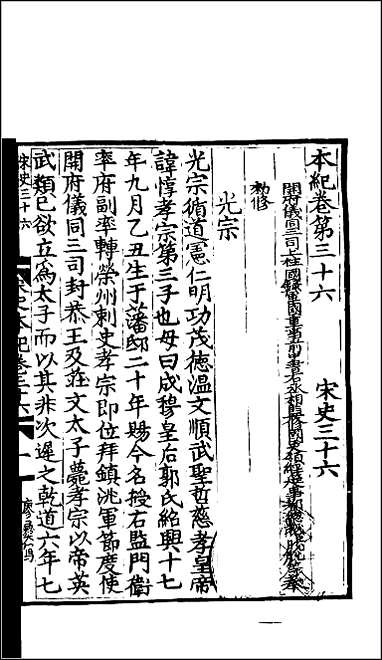 本紀卷第三十六　宋史三十六
開府儀同三司上柱國錄軍國重事前中書右丞相監修國史領經筵事都總裁脫脫等奉
勑修
光宗
光宗循道憲仁明功茂德溫文順武聖哲慈孝皇帝
諱惇孝宗第三子也母曰成穆皇后郭氏紹興十七
年九月乙丑生于藩邸二十年賜今名授右監門衛
率府副率轉榮州刺史孝宗即位拜鎮洮軍節度使
開府儀同三司封恭王及莊文太子薨孝宗以帝英
武類己欲立爲太子而以其非次遲之乾道六年七
宋史三十六
宋史本紀卷三十六
一